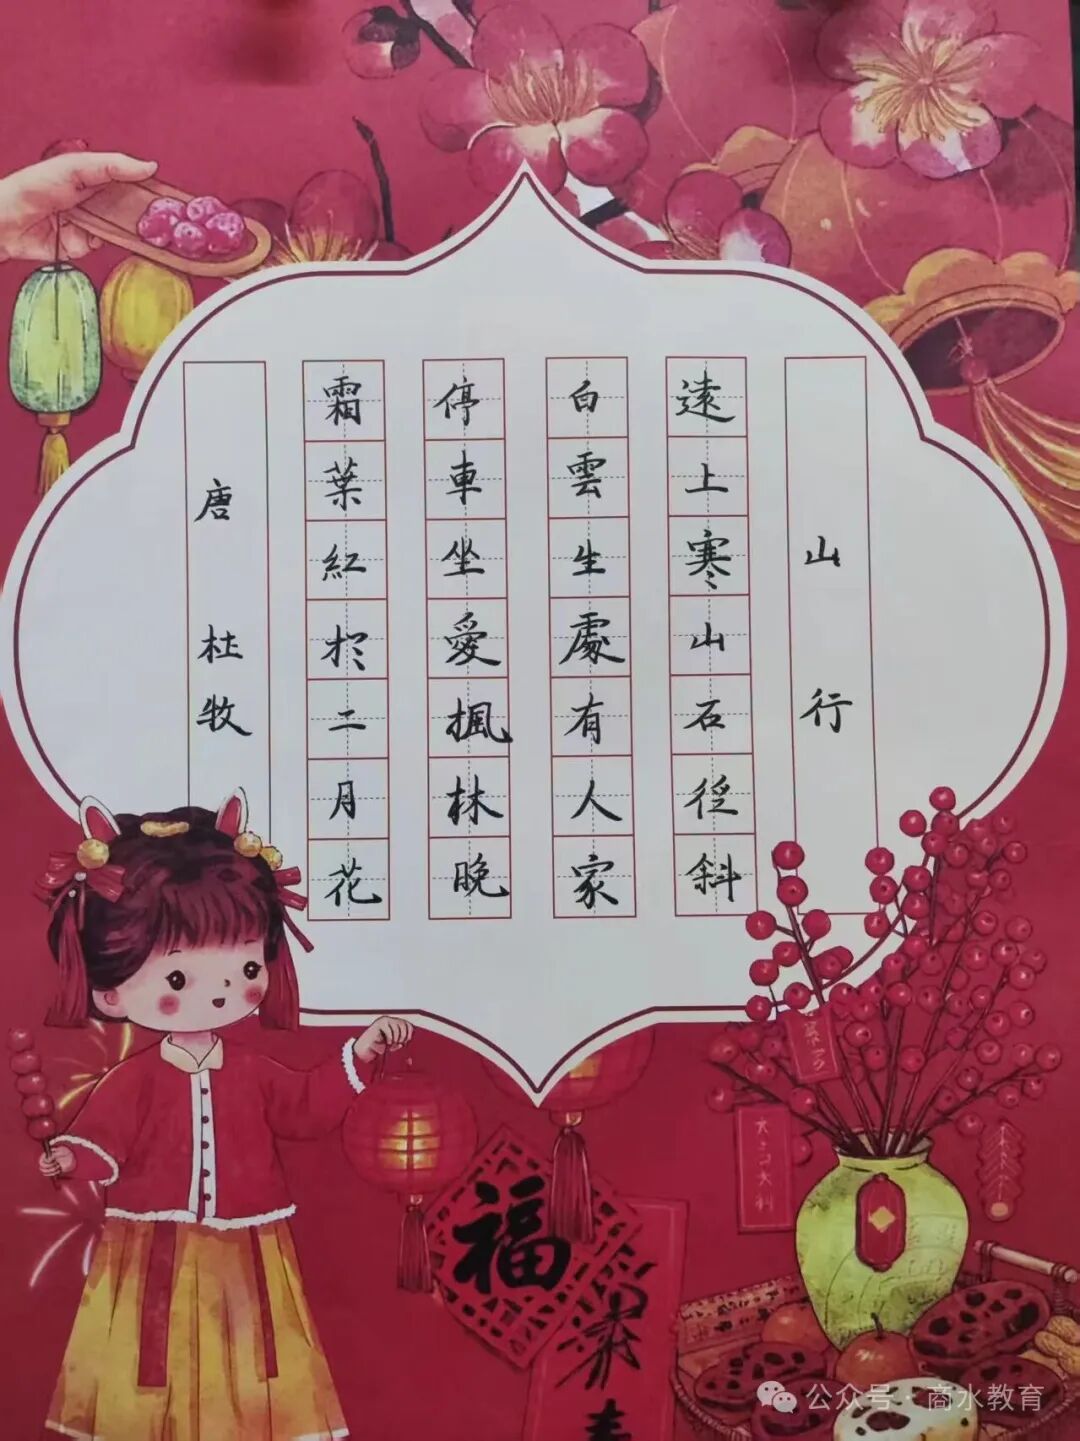 山行
遠上寒山石徑斜
白雲生處有人家
停車坐愛楓林晚
霜葉紅於二月花
唐 杜牧
福
公众号 · 商水教育